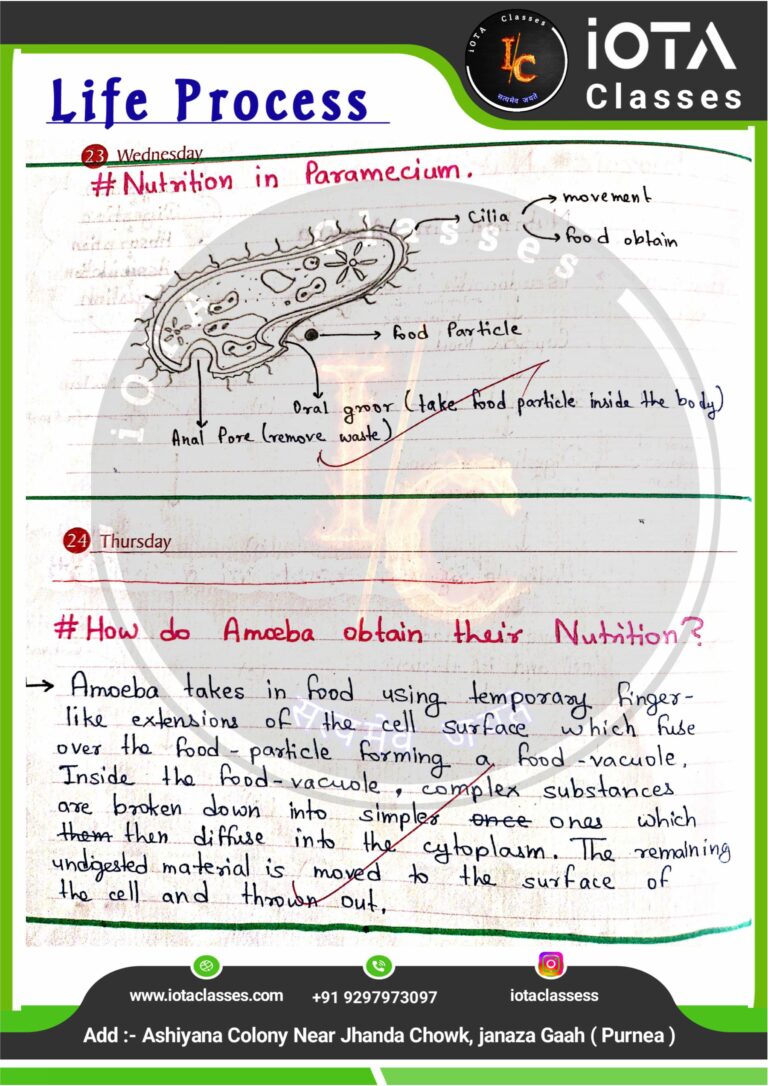 iOTA Classes
I/C
सत्यमेव जयते
iOTA
Classes
Life Process
23 Wednesday
# Nutrition in Paramecium.
Cilia
movement
food obtain
food Particle
Oral groor (take food particle inside the body)
Anal Pore (remove waste)
iOTA Classes
I/C
सत्यमेव जयते
24 Thursday
# How do Amoeba obtain their Nutrition?
→ Amoeba takes in food using temporary finger-
like extensions of the cell surface which fuse
over the food-particle forming a food-vacuole.
Inside the food-vacuole, complex substances
are broken down into simpler once ones which
them then diffuse into the cytoplasm. The remaining
undigested material is moved to the surface of
the cell and thrown out.
www.iotaclasses.com
+91 9297973097
iotaclassess
Add :- Ashiyana Colony Near Jhanda Chowk, janaza Gaah ( Purnea )